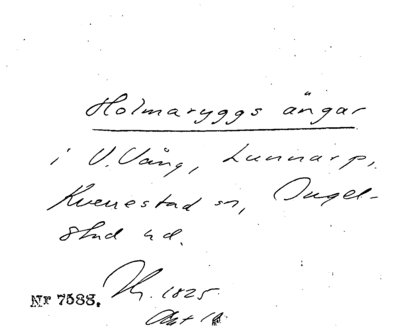 Holmaryggs ängar
i V. Vång, Lunnarp,
Kverrestad sn, Ingel-
stad hd.
Nr 7588. Th. 1825
Akt 18